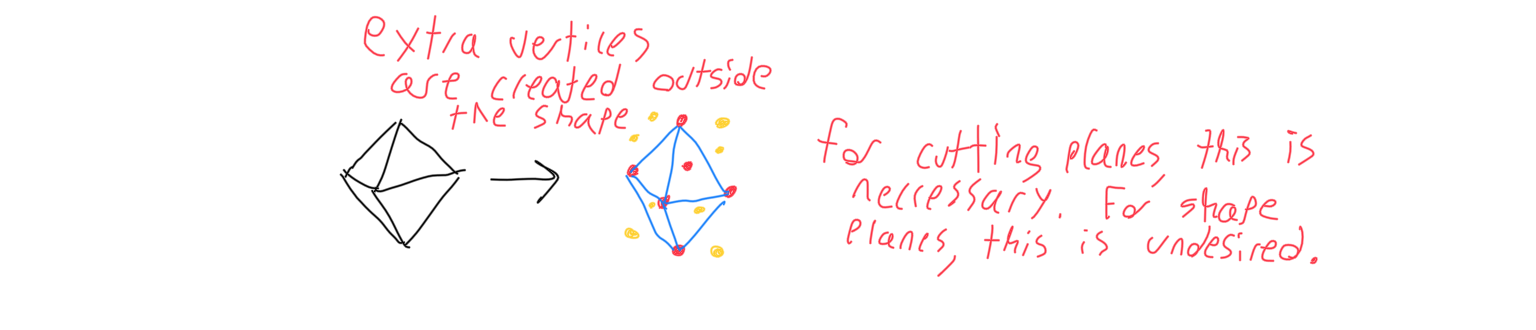 extra vertices
are created outside
the shape
for cutting planes, this is
neccessary. For shape
planes, this is undesired.